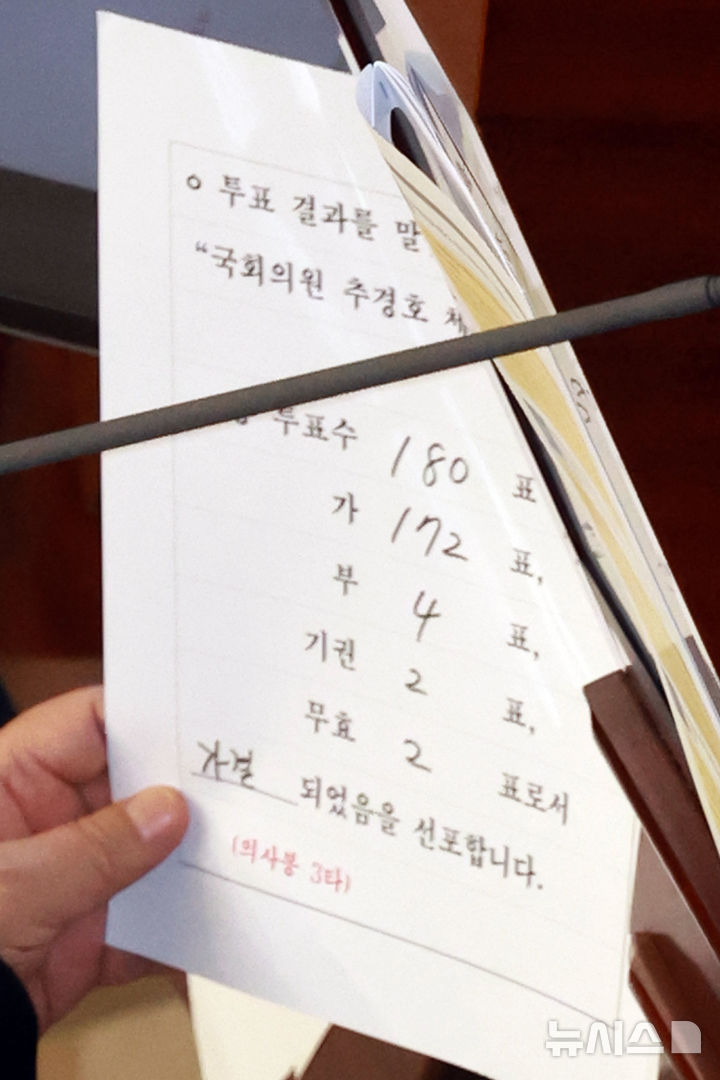 ○ 투표 결과를 말
“국회의원 추경호 체
투표수 180 표
가 172 표,
부 4 표,
기권 2 표,
무효 2 표로서
가결 되었음을 선포합니다.
(의사봉 3타)
뉴시스